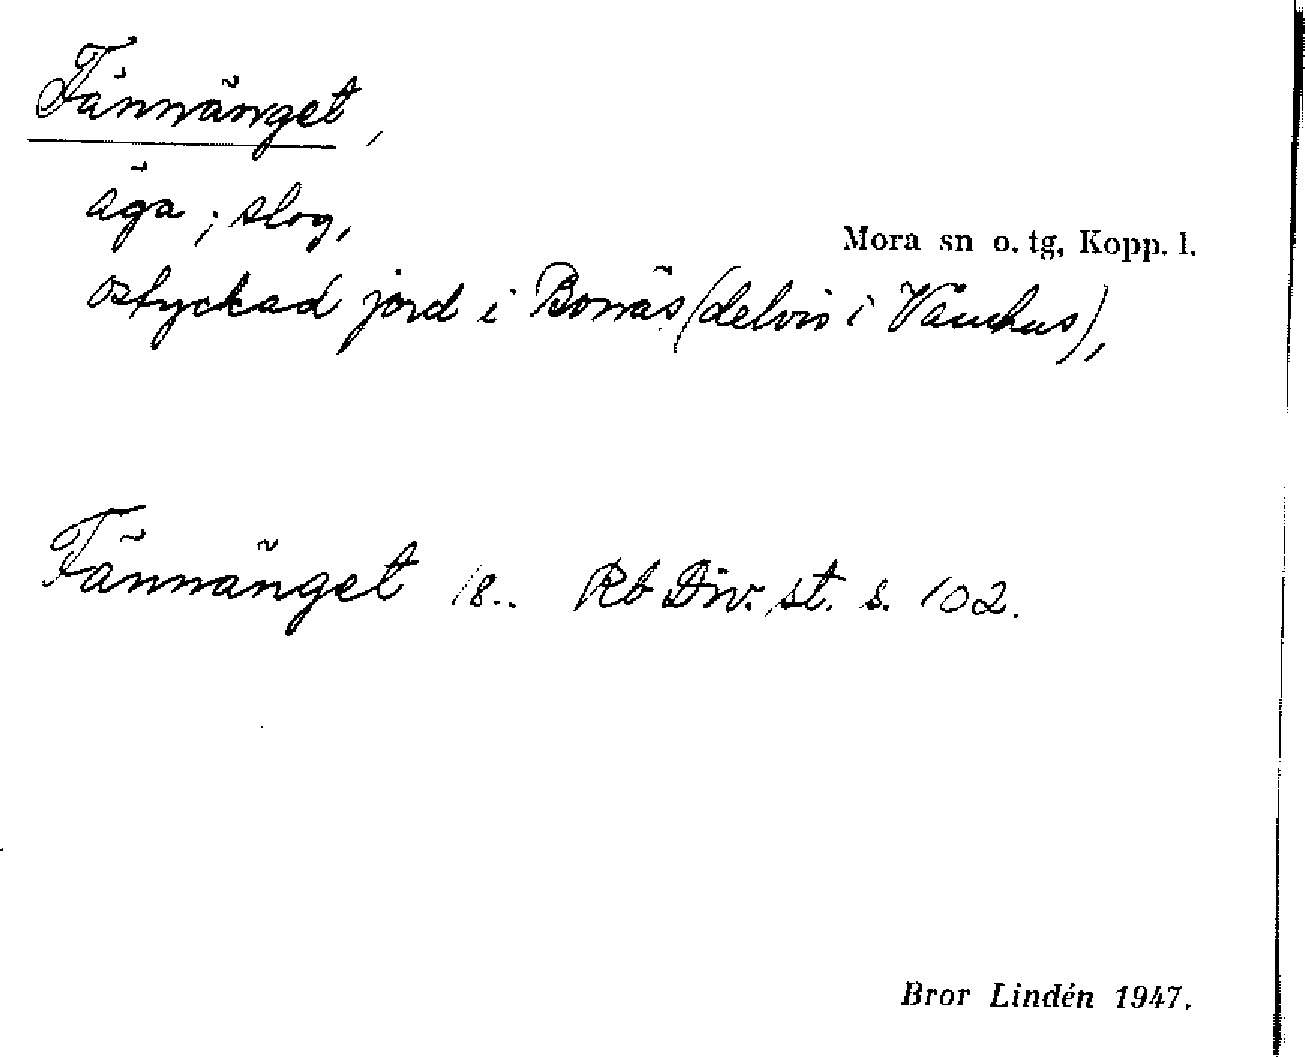 Fännänget,
äga; slog,
Mora sn o. tg, Kopp. l.
ostyckad jord i Bonäs (delvis i Våmhus),
Fännänget 18.. Rb Div. st. s. 102.
Bror Lindén 1947.